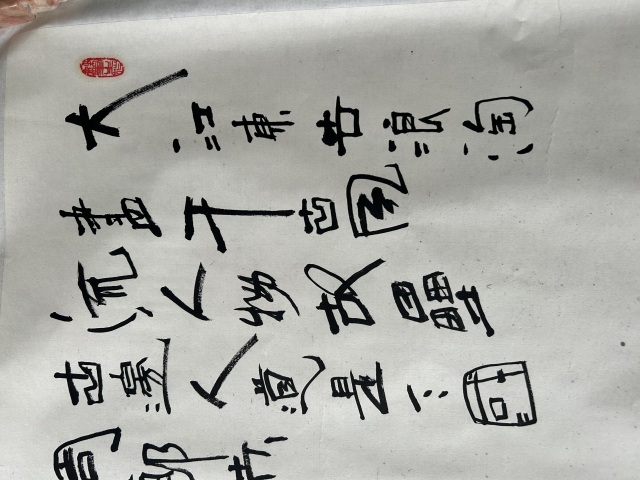 大江東去浪淘
盡千古風
流人物故壘
西邊人道是三國
周郎赤